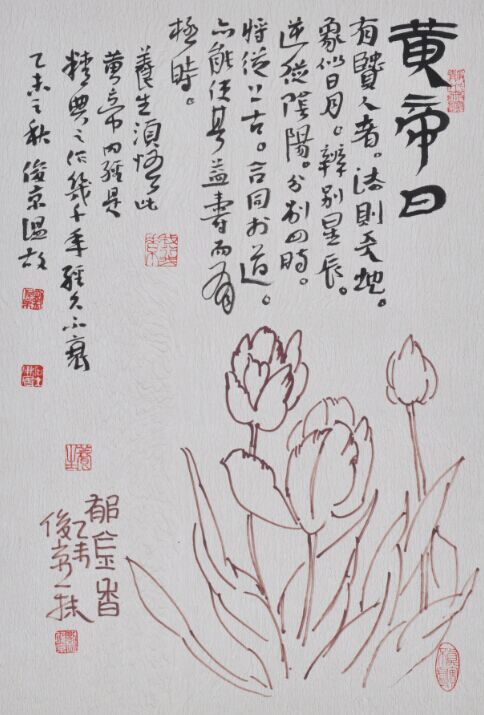 黄帝曰
有賢人者。法則天地。
象似日月。辨别星辰。
逆從陰陽。分别四時。
将從上古。合同於道。
亦能使其益壽而有
極時。
養生須悟此
黄帝内經是
精典之作幾千年經久不衰
乙未之秋 俊京温故
郁金香
乙未
俊京一抹